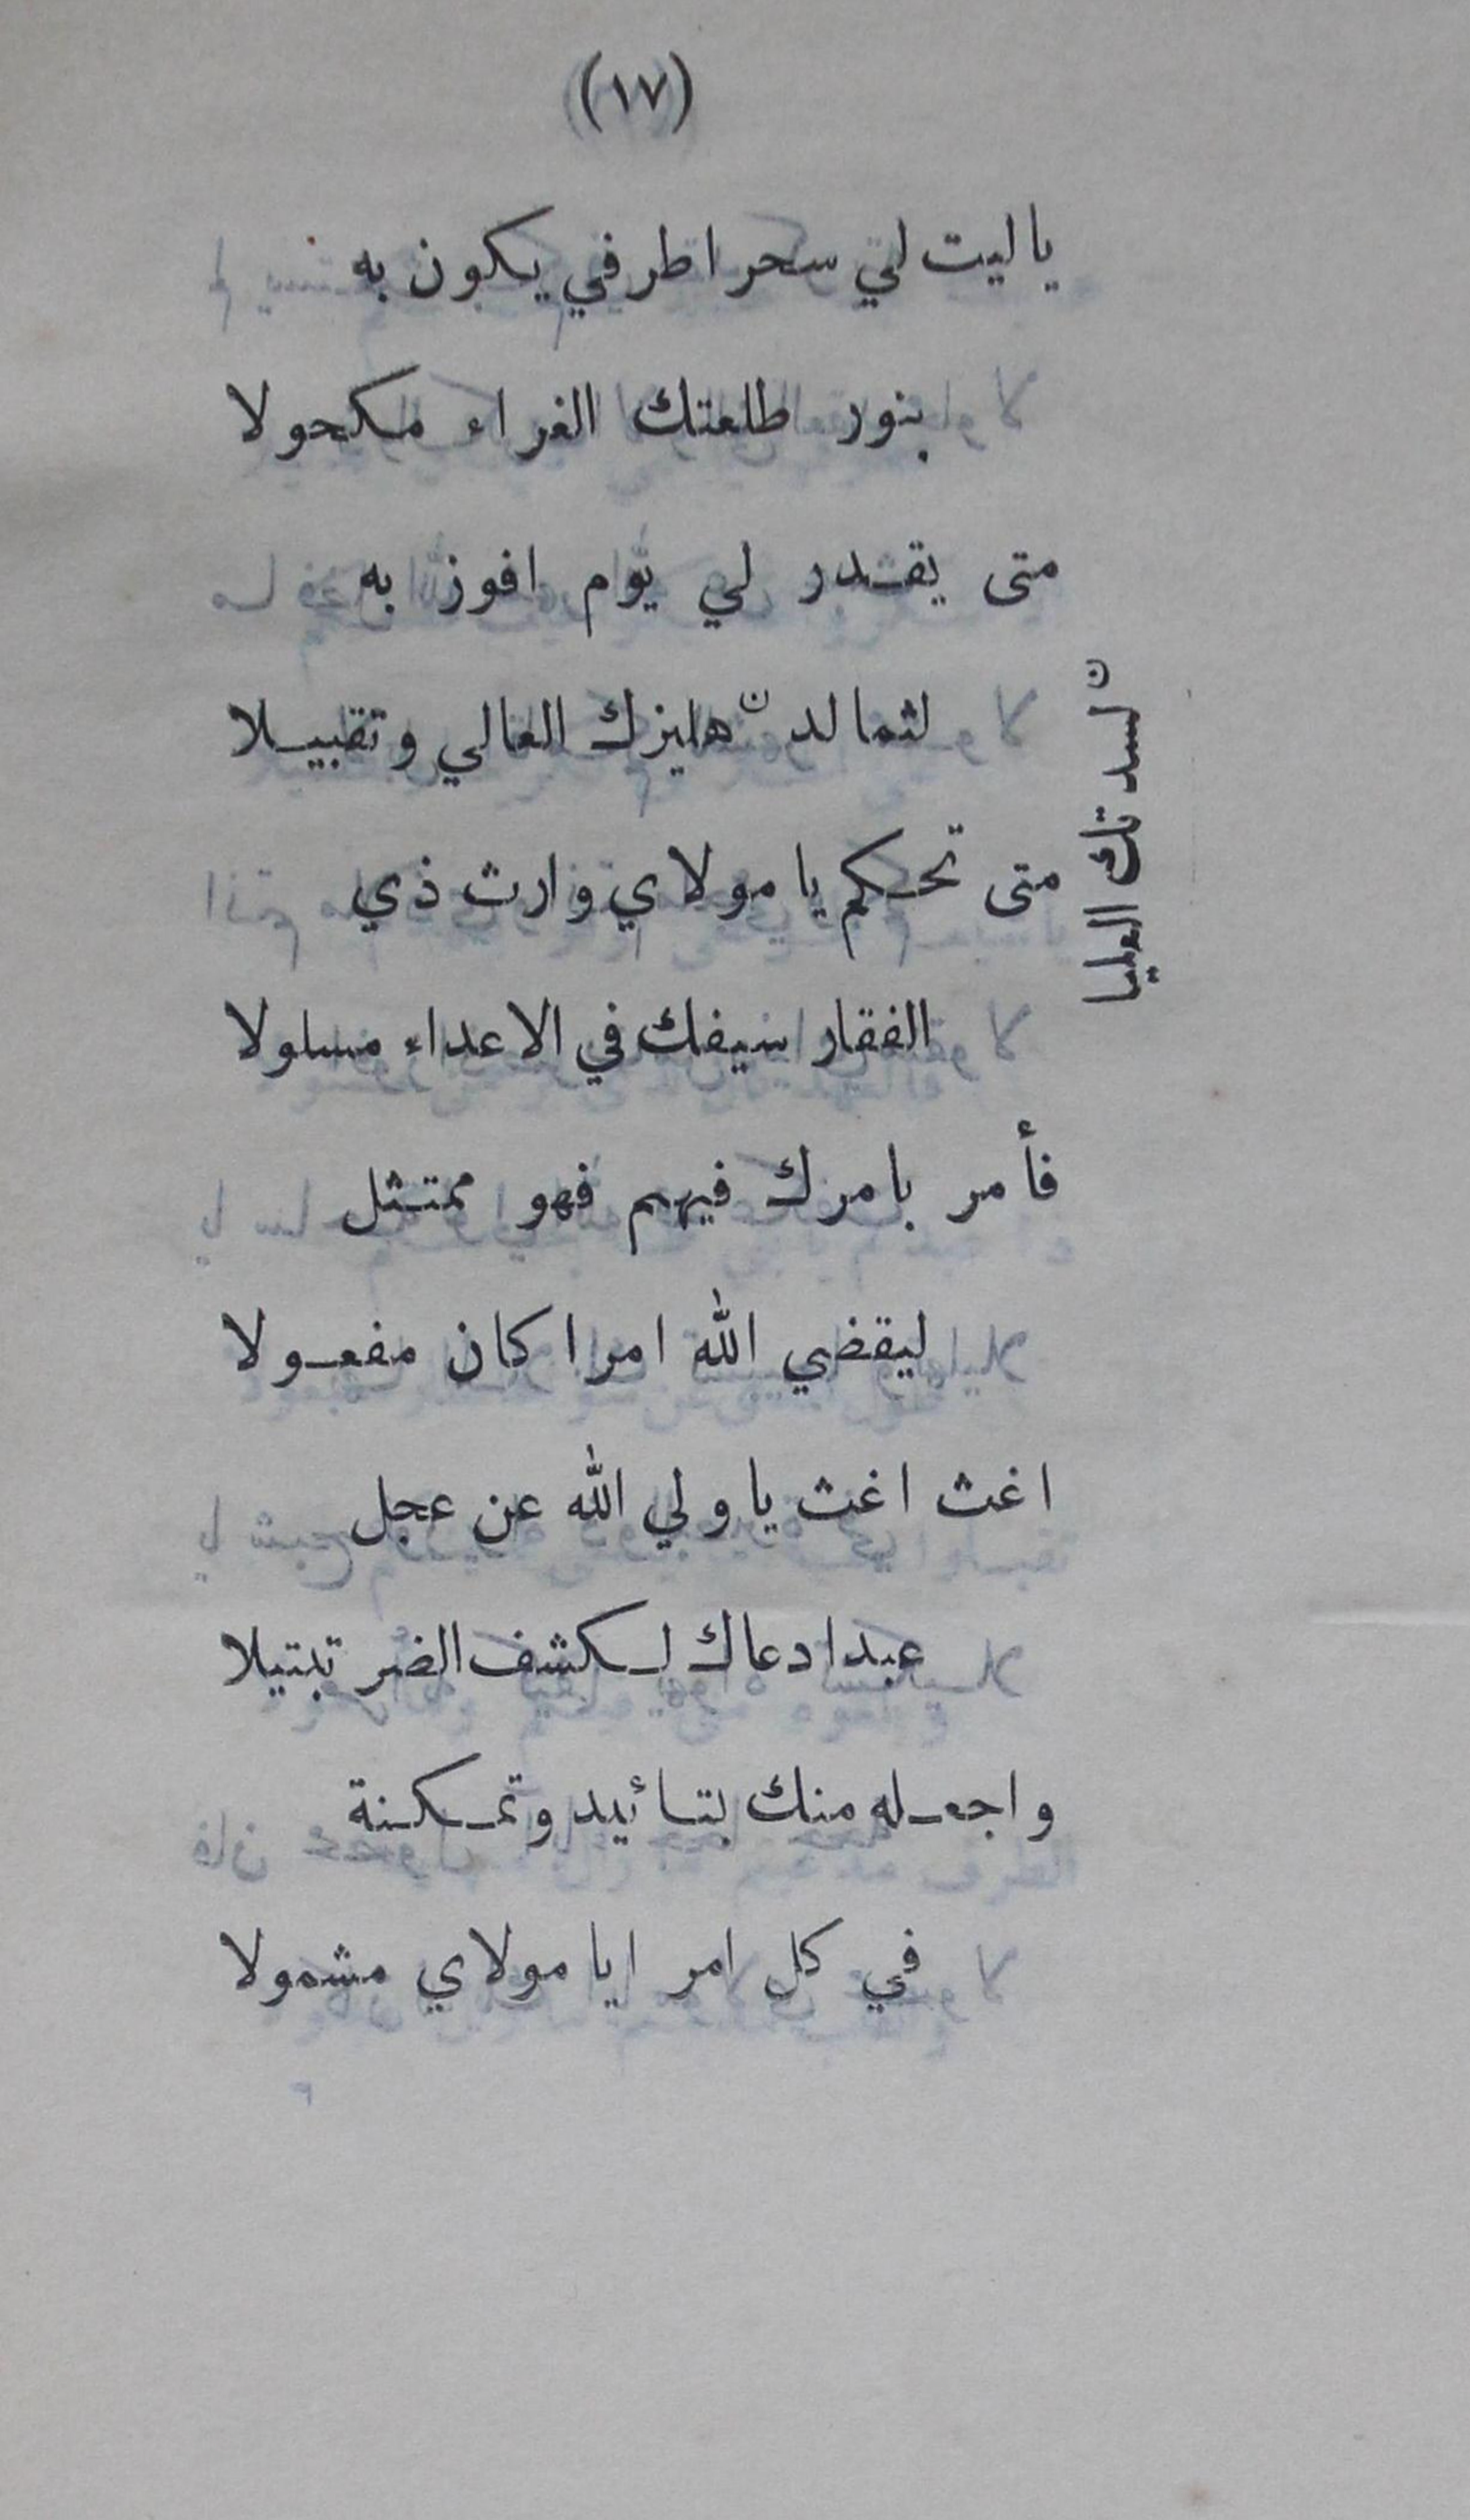 (١٧)
يا ليت لي سحرا طرفي يكون به
بنور طلعتك الغراء مكحولا
متى يقدر لي يوم افوز به
لثما لدهليزك العالي وتقبيلا
ن لسدتك العليا
متى تحكم يا مولاي وارث ذي
الفقار سيفك في الاعداء مسلولا
فأمر بامرك فيهم فهو ممتثل
ليقضي الله امرا كان مفعولا
اغث اغث يا ولي الله عن عجل
عبدا دعاك لكشف الضر تبتيلا
واجعله منك بتائيد وتمكنة
في كل امر ايا مولاي مشمولا